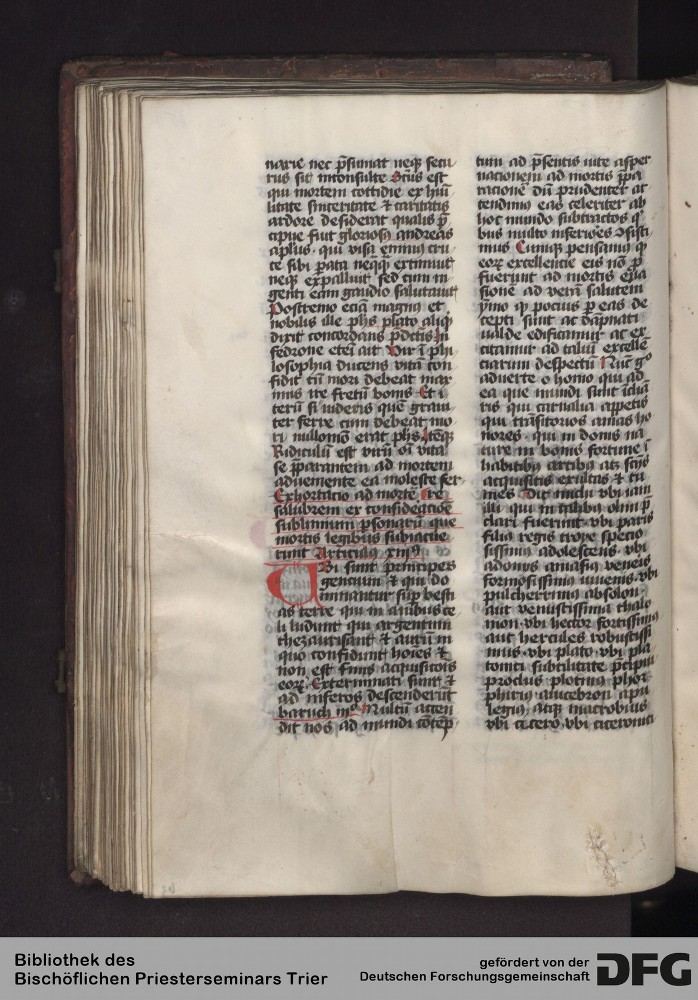 narie nec p̄sumat neqꝫ secu
rus sit inconsulte Sc̄us est
qui mortem cottidie ex hūi
litate sinceritate ⁊ caritatis
ardore desiderat qualis p̄
cipue fuit gloriosꝯ andreas
ap̄lus · qui visa eminꝯ cru
ce sibi pata neqꝙ extimuit
neqꝫ expalluit sed cum in
genti eam gaudio salutauit
Postremo eciā magnꝯ et
nobilis ille ph̄s plato aliqͥ
dixit concordans p̄dictis In
fedrone etēi ait Vir ī phi
losophia ducens vitā con
fidit cū mori debeat max
imis ire fretū bonis Et i
terū si videris quē graui
ter ferre cum debeat mo
ri nullomō erat ph̄s Itēqꝫ
Ridiculū est virū oī vita
se p̱parantem ad mortem
adueniente ea moleste fer
Exhortacio ad mortē re
salubrem ex consideracōe
sublimium p̱sonarū que
mortis legibus subiacue
runt Articulus xiiiꝯ
Ubi sunt principes
gencium ⁊ qui do
minantur suꝑ besti
as terre qui in auibus ce
li ludunt qui argentum
thezaurisant ⁊ aurū in
quo confidunt hoīes ⁊
non est finis acquisicōis
eorꝫ Exterminati sunt ⁊
ad inferos descenderūt
baruch iiiꝯ Multū accen
dit nos ad mundi cōtēp
tum ad p̄sentis vite asper
nacionem ad mortis p̄pa
racionē dū prudenter at
tendimꝯ eas celeriter ab
hoc mundo subtractos qͥ
bus multo inferiores ꝯsisti
mus Cumqꝫ pensamꝯ qꝫ
eorꝫ excellencie eis nō ꝓ
fuerunt ad mortis eua
sionē ad verā salutem
ymo qꝫ pocius ꝑ eas de
cepti sunt ac dāpnati
valde edificamur ac ex
citamur ad taliū excellē
ciarum despectū Nūc gͦ
aduerte o homo qui ad
ea que mundi sunt īclia
ris qui carnalia appetis
qui trāsitorios amas ho
nores · qui in donis na
ture in bonis fortune ī
habitibꝯ artibꝯ atqꝫ sc̄iis
acquisitis exultas ⁊ tu
mes Dic michi vbi iam
illi qui in talibꝯ olim p̄
clari fuerunt vbi paris
filiꝯ regis troye specio
sissimꝯ adolescens · vbi
adonis amasiꝯ veneris
formosissimꝯ iuuenis · vbi
pulcherrimꝯ absolon
aut venustissimꝯ thalo
mon · vbi hector fortissimꝯ
aut hercules robustissi
mus · vbi plato · vbi pla
tonici subtilitate p̄cipui
proclus plotinꝯ phor
phirius auicebron apu
legiꝯ atqꝫ macrobius
vbi cicero · vbi ciceronici
Bibliothek des
Bischöflichen Priesterseminars Trier
gefördert von der
Deutschen Forschungsgemeinschaft DFG